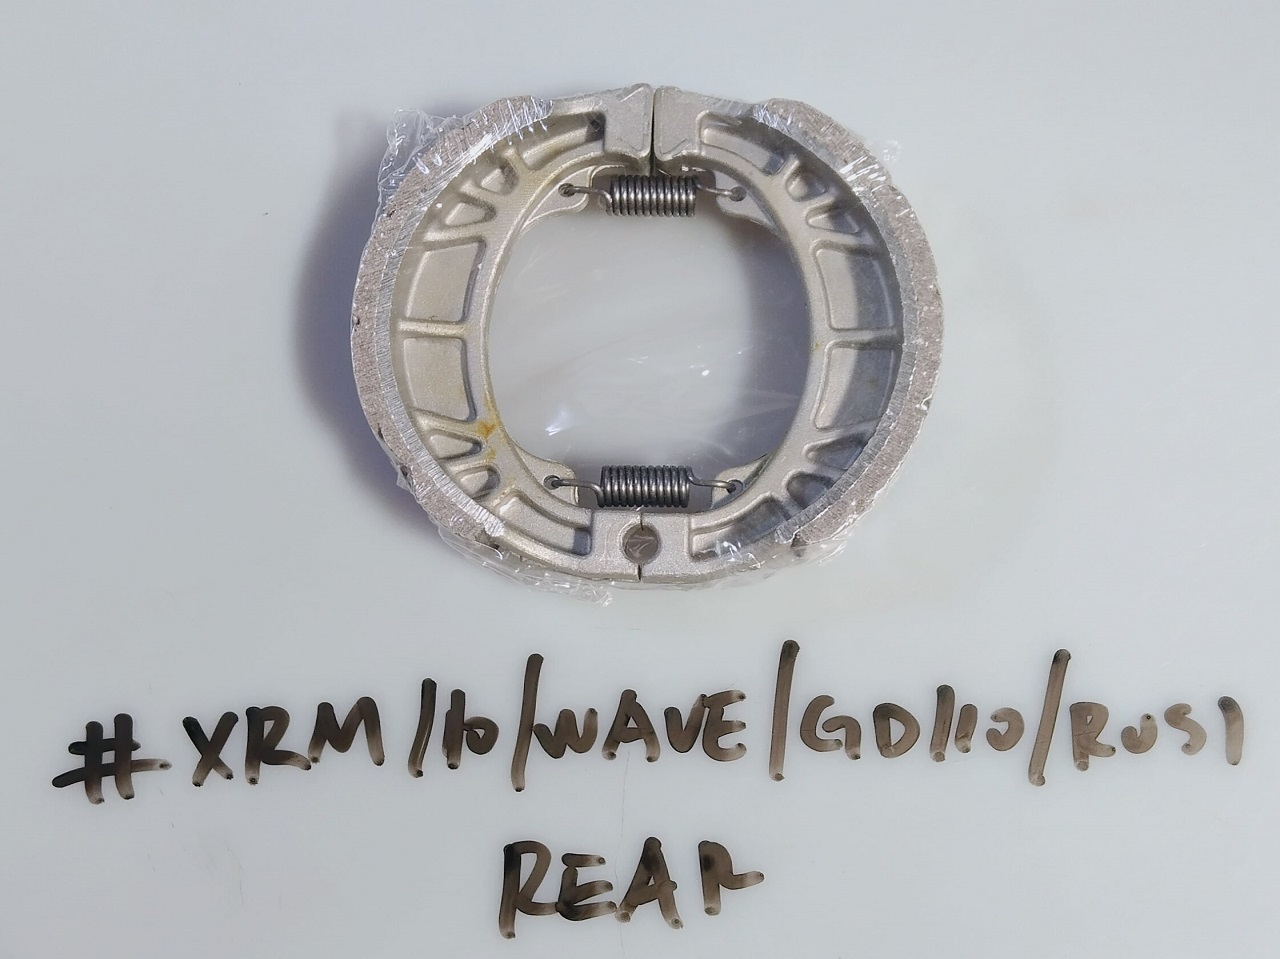 #XRM110/WAVE/GD110/RUSI
REAR